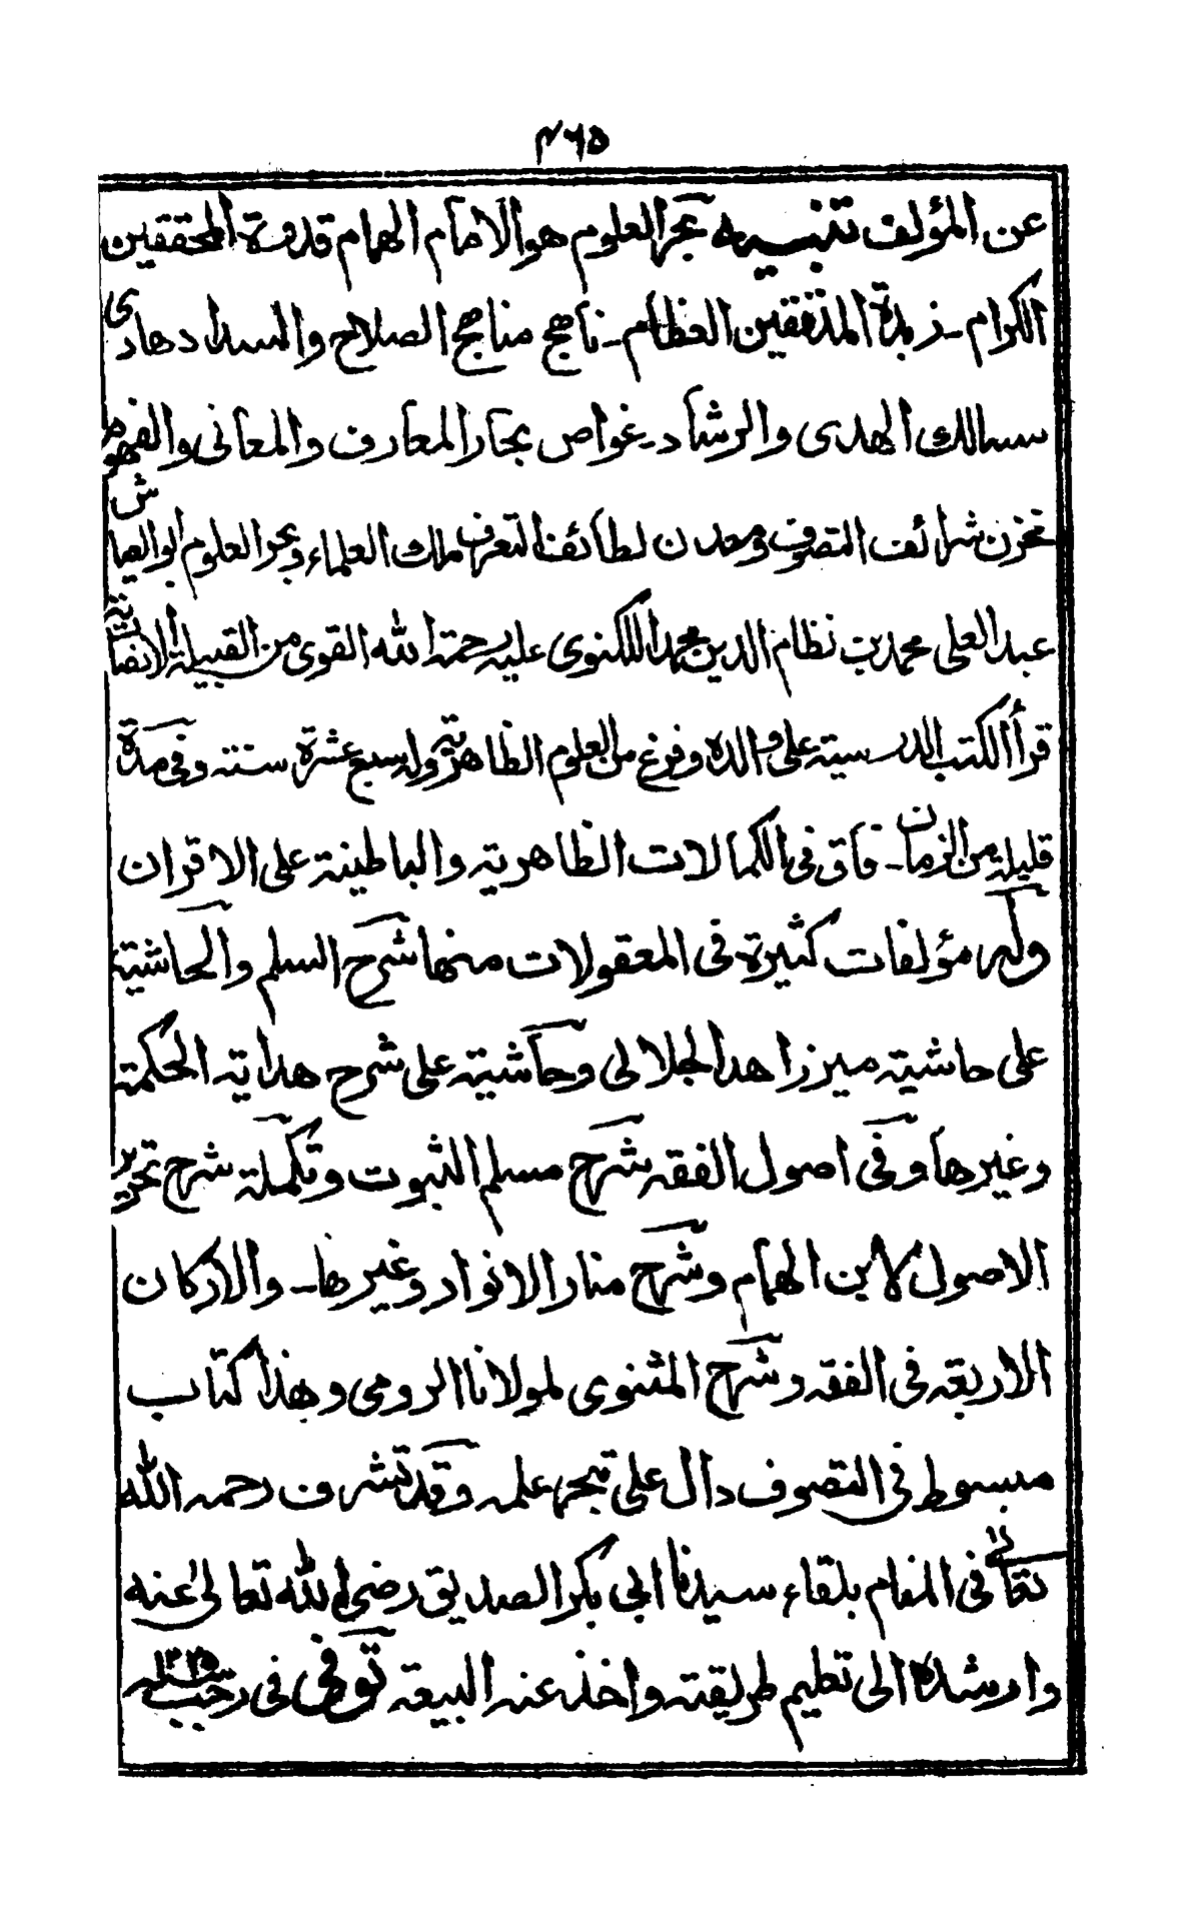 ٤٦٥
عن المؤلف تنبيه بحر العلوم هو الامام الهمام قدوة المحققين
الكرام ـ زبدة المدققين العظام ـ ناهج مناهج الصلاح والسداد هادى
سالك الهدى والرشاد ـ غواص بحار المعارف والمعانى والفهوم
مخزن شرائف التصوف ومعدن لطائف التعرف ملك العلماء وبحر العلوم ابو العياش
عبد العلى محمد بن نظام الدين محمد اللكنوى عليه رحمة الله القوى من القبيلة الانصارية
قرأ الكتب الدرسية على والده وفرغ من العلوم الظاهرية وله سبع عشرة سنة وفى مدة
قليلة من الزمان ـ فاق فى الكمالات الظاهرية والباطينة على الاقران
وله مؤلفات كثيرة فى المعقولات منها شرح السلم والحاشية
على حاشية ميرزاهد الجلالى وحاشية على شرح هداية الحكمة
وغيرها وفى اصول الفقه شرح مسلم الثبوت وتكملة شرح تحرير
الاصول لابن الهمام وشرح منار الانوار وغيرها ـ والاركان
الاربعة فى الفقه وشرح المثنوى لمولانا الرومى وهذا كتاب
مبسوط فى التصوف دال على تبحر علمه وقد تشرف رحمه الله
تعالى فى المنام بلقاء سيدنا ابى بكر الصديق رضى الله تعالى عنه
وارشده الى تعليم طريقته واخذ عنه البيعة توفى فى رجب